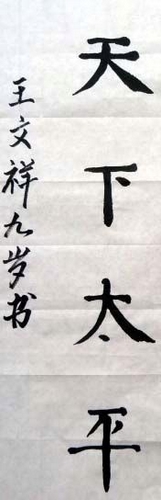 天下太平
王文祥九岁书